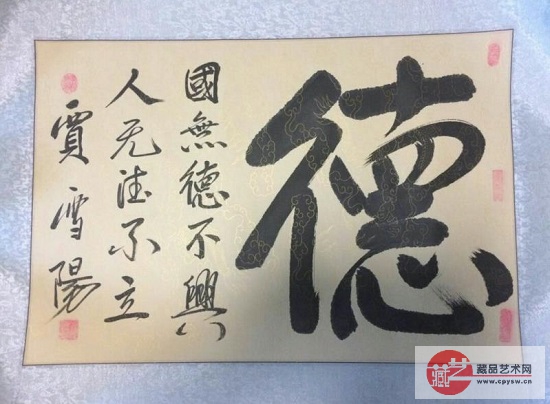 德
國無德不興
人无德不立
賈雪陽
藏艺
藏品艺术网
www.cpysw.cn